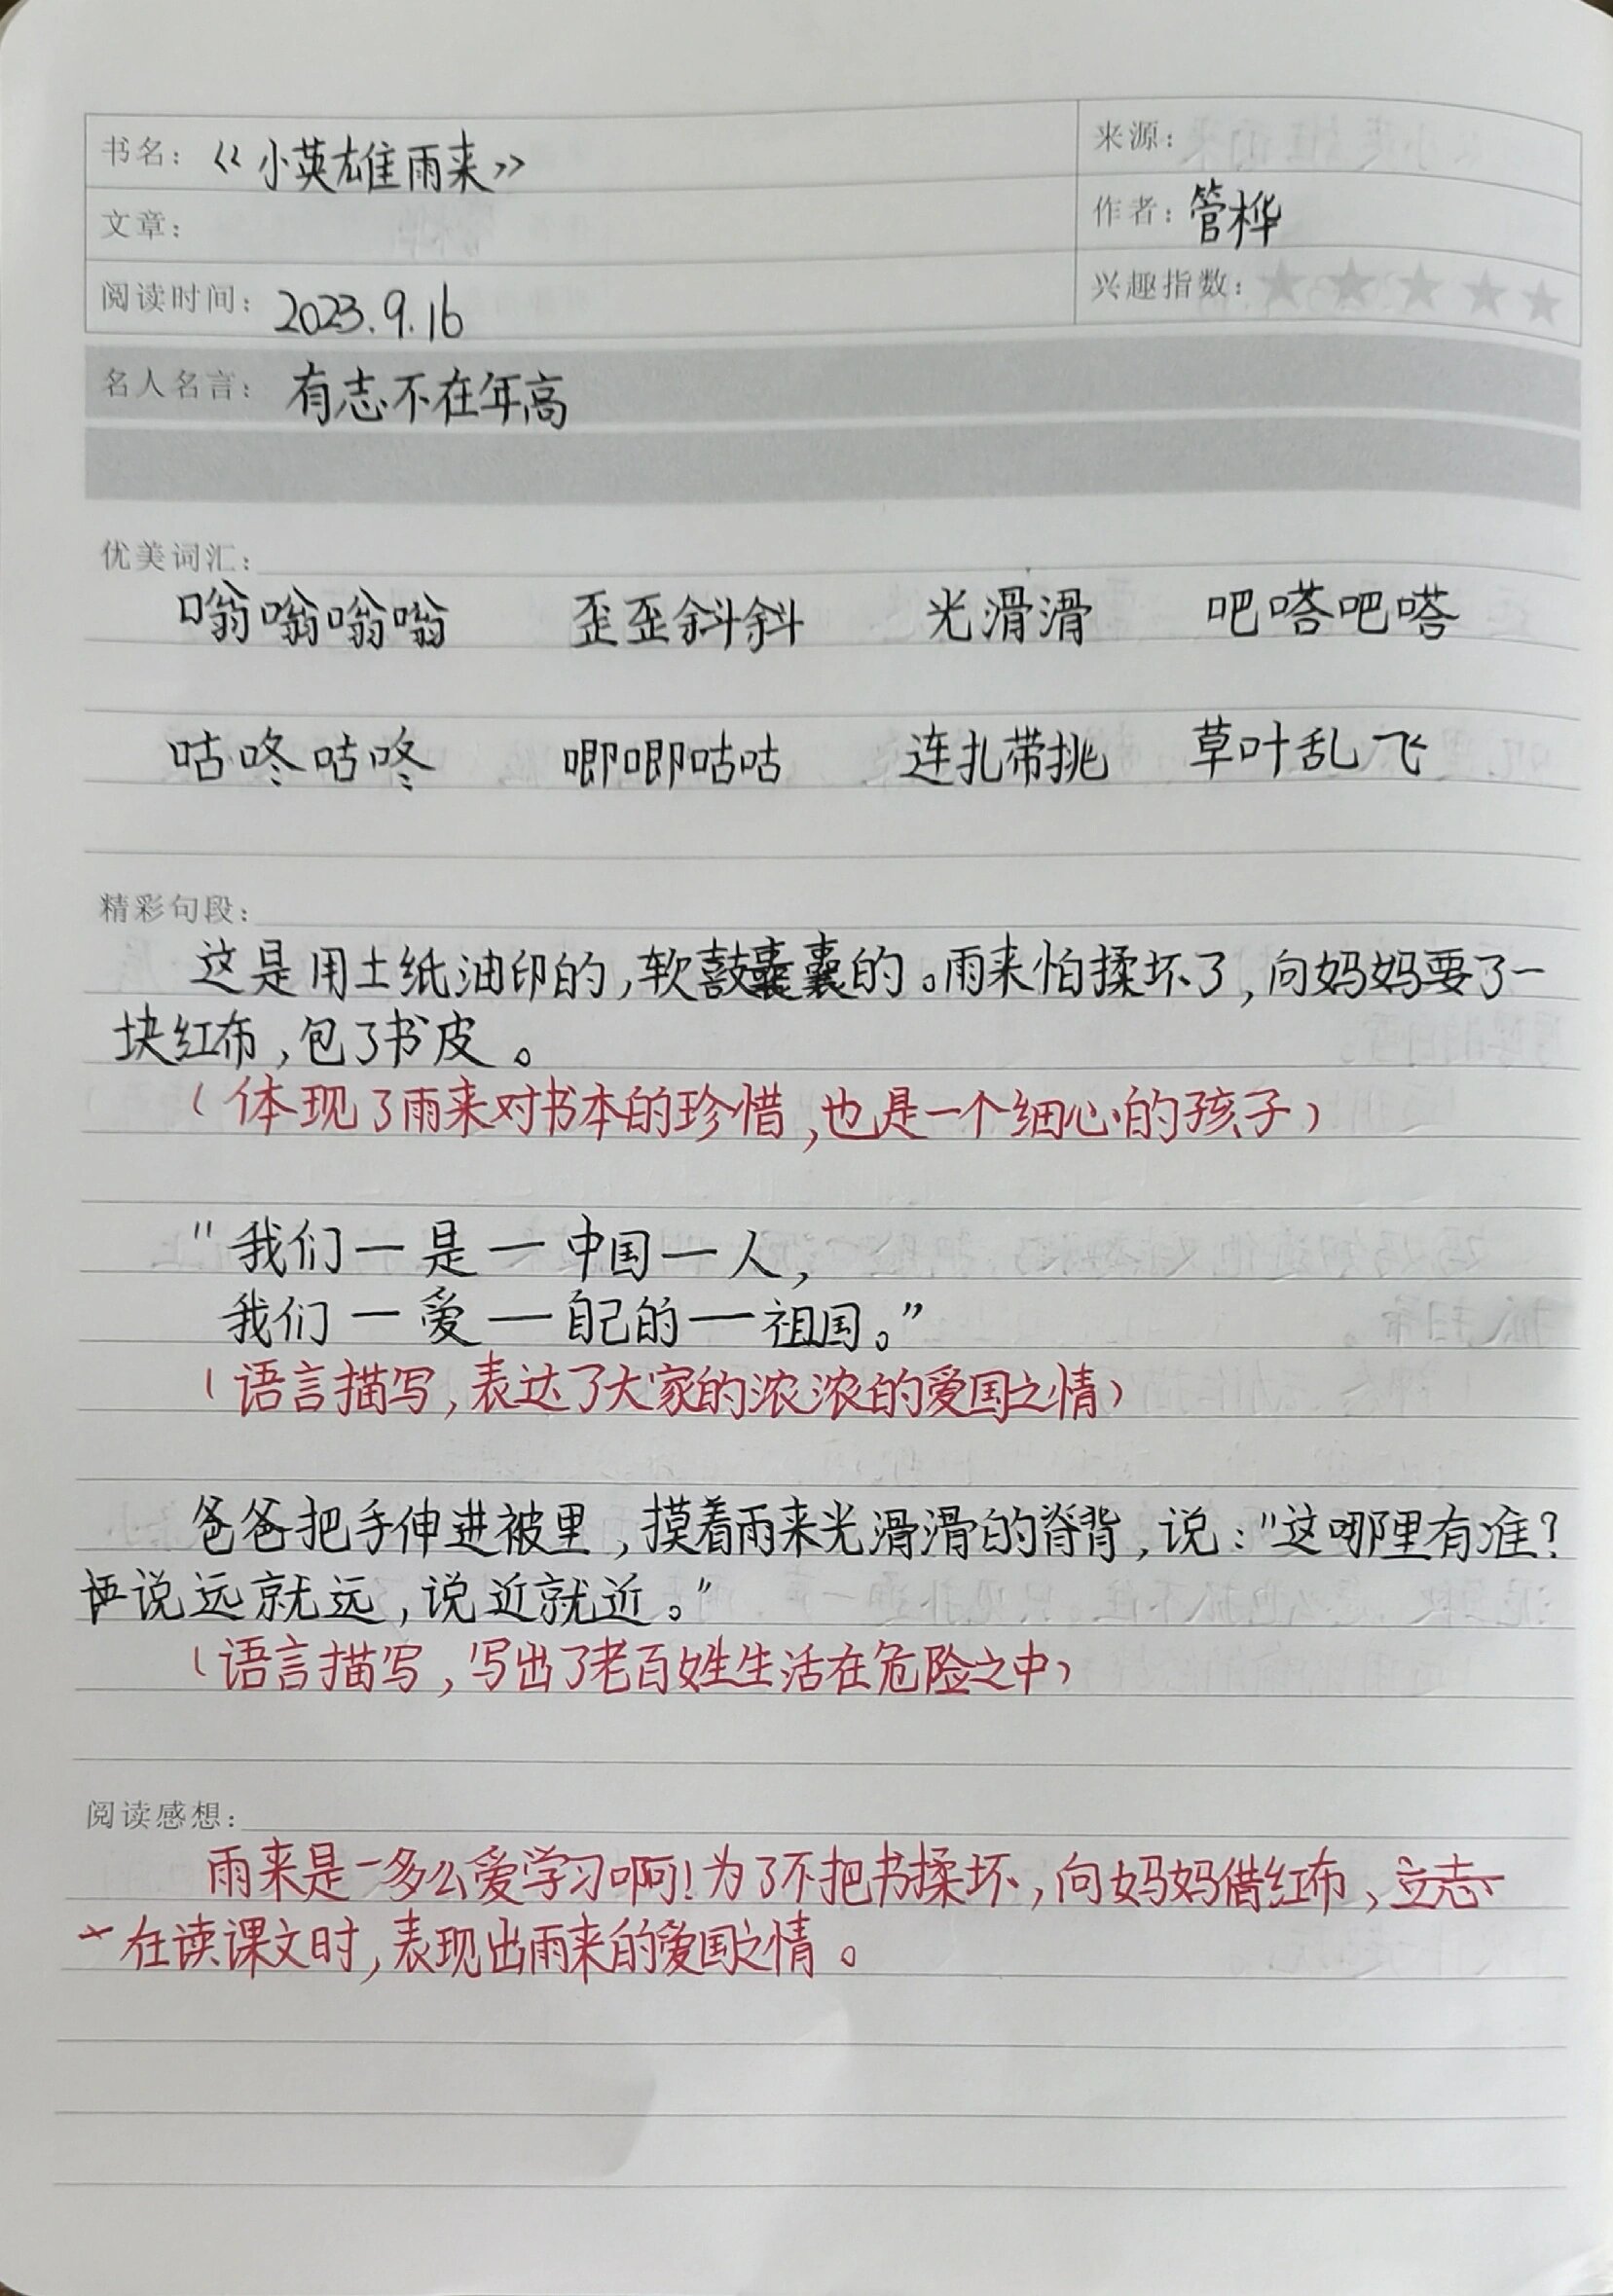 书名：《小英雄雨来》 来源：
文章： 作者：管桦
阅读时间：2023.9.16 兴趣指数：★★★★★
名人名言：有志不在年高
优美词汇：
嗡嗡嗡嗡 歪歪斜斜 光滑滑 吧嗒吧嗒
咕咚咕咚 唧唧咕咕 连扎带挑 草叶乱飞
精彩句段：
这是用土纸油印的,软鼓囊囊的。雨来怕揉坏了,向妈妈要了一
块红布,包了书皮。
（体现了雨来对书本的珍惜,也是一个细心的孩子）
"我们一是一中国一人,
我们一爱一自己的一祖国。"
（语言描写,表达了大家的浓浓的爱国之情）
爸爸把手伸进被里,摸着雨来光滑滑的脊背,说:"这哪里有准?
说远就远,说近就近。"
（语言描写,写出了老百姓生活在危险之中）
阅读感想：
雨来是一多么爱学习啊!为了不把书揉坏,向妈妈借红布,立志
在读课文时,表现出雨来的爱国之情。